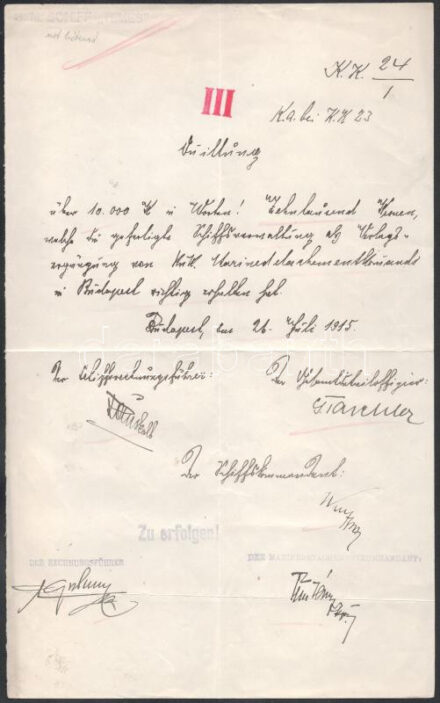 K.K. 24
1
III
K.a. bei K.K 23
Quittung
über 10.000 K in Worten! Zehntausend Kronen,
welche die gefertigte Schiffsverwaltung als Verlags-
ergänzung von k.u.k. Marinedetachementkommando
in Budapest richtig erhalten hat.
Budapest, am 26. Juli 1915.
Der Schiffsrechnungsführer:
Der Gesamtdetailoffizier:
Der Schiffskommandant:
Zu erfolgen!
DER RECHNUNGSFÜHRER
DER MARINEDETACHEMENTKOMMANDANT: